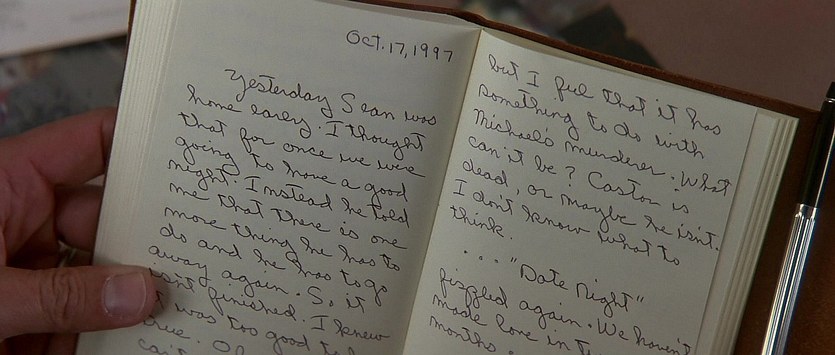 Oct. 17, 1997
Yesterday Sean was
home early. I thought
that for once we were
going to have a good
night. Instead he told
me that there is one
more thing he has to
do and he has to go
away again. So, it
isn't finished. I knew
it was too good to
true. Of
can't
but I feel that it has
something to do with
Michael's murderer. What
can it be? Castor is
dead, or maybe he isn't.
I don't know what to
think.
... "Date Night"
fizzled again. We haven't
made love in
months.